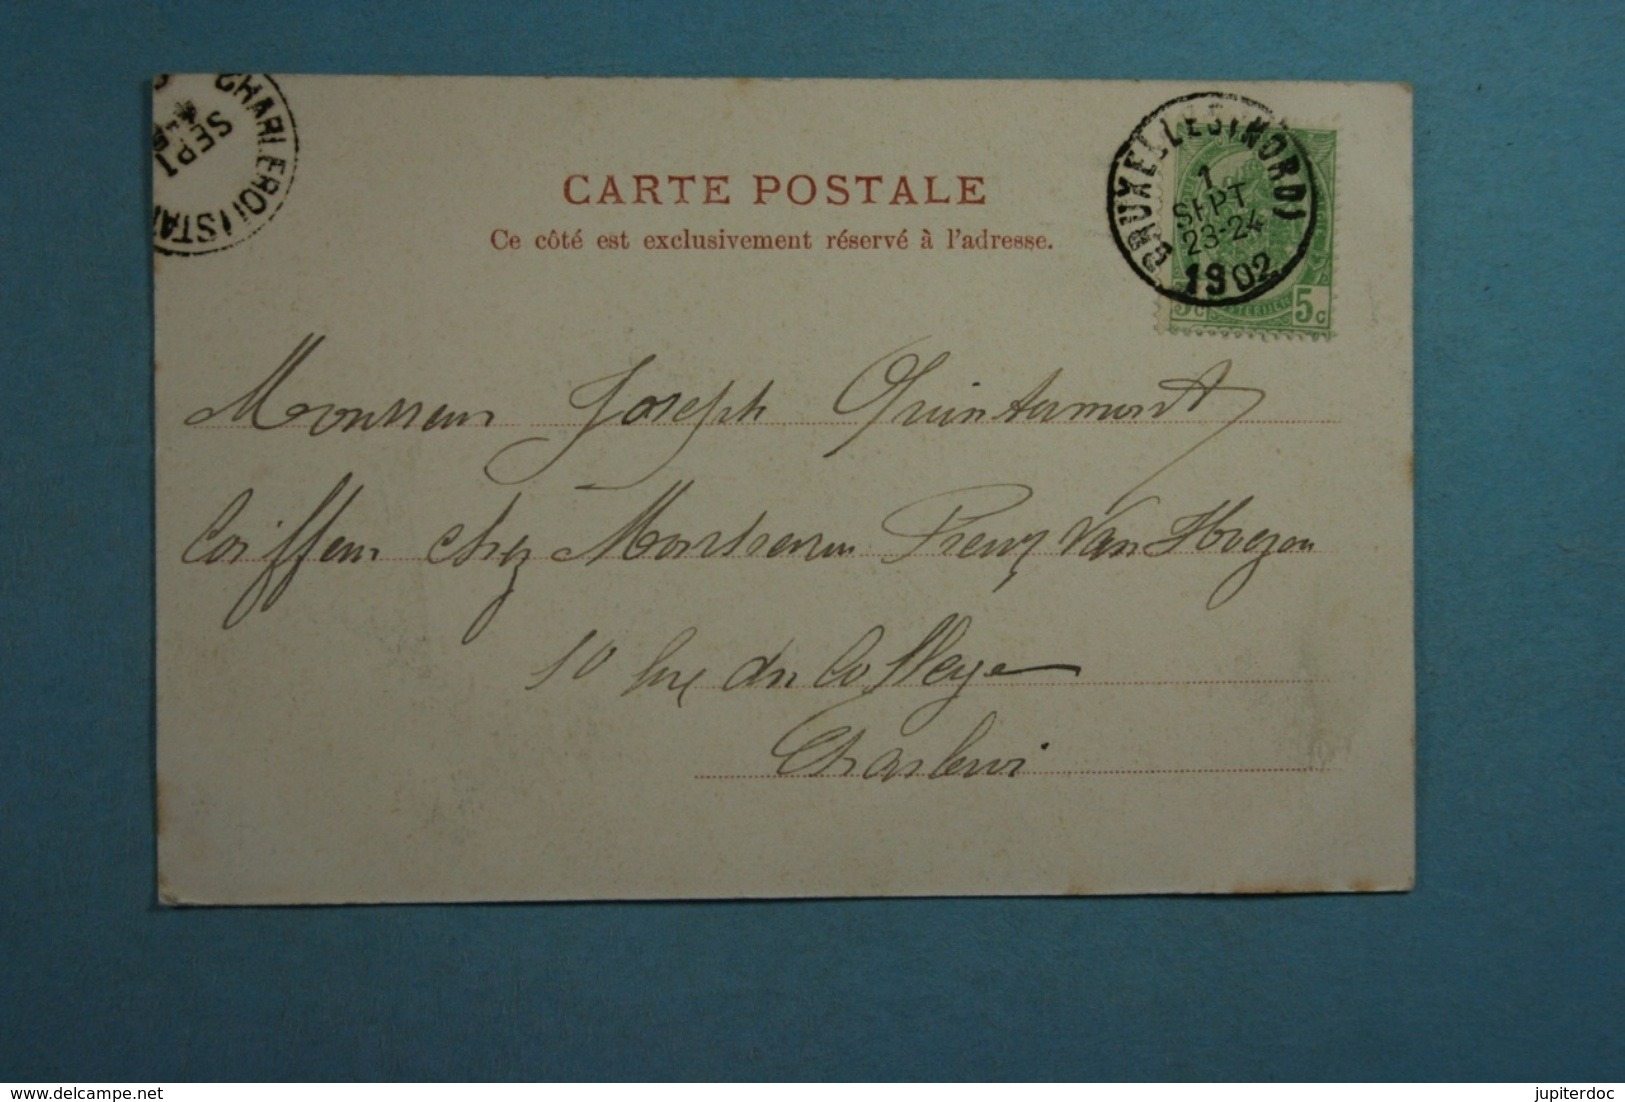 CHARLEROI (STA
SEPT
BRUXELLES (NORD)
1
SEPT
23-24
1902
5c 5c
CARTE POSTALE
Ce côté est exclusivement réservé à l'adresse.
Monsieur Joseph Quintamont
Coiffeur chez Monsieur Van
10 Rue du Collége
Charleroi
delcampe.net
jupiterdoc